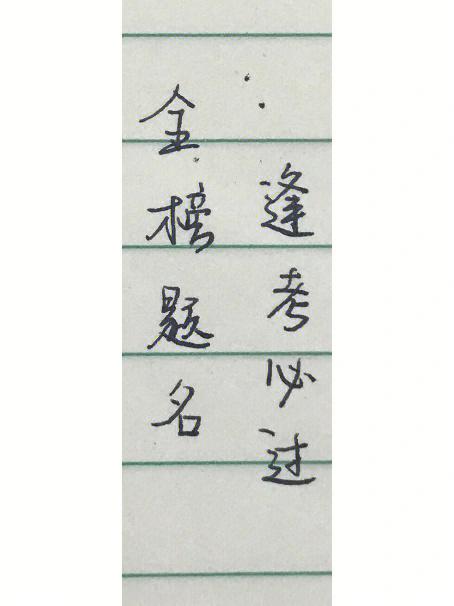 逢考必过
金榜题名